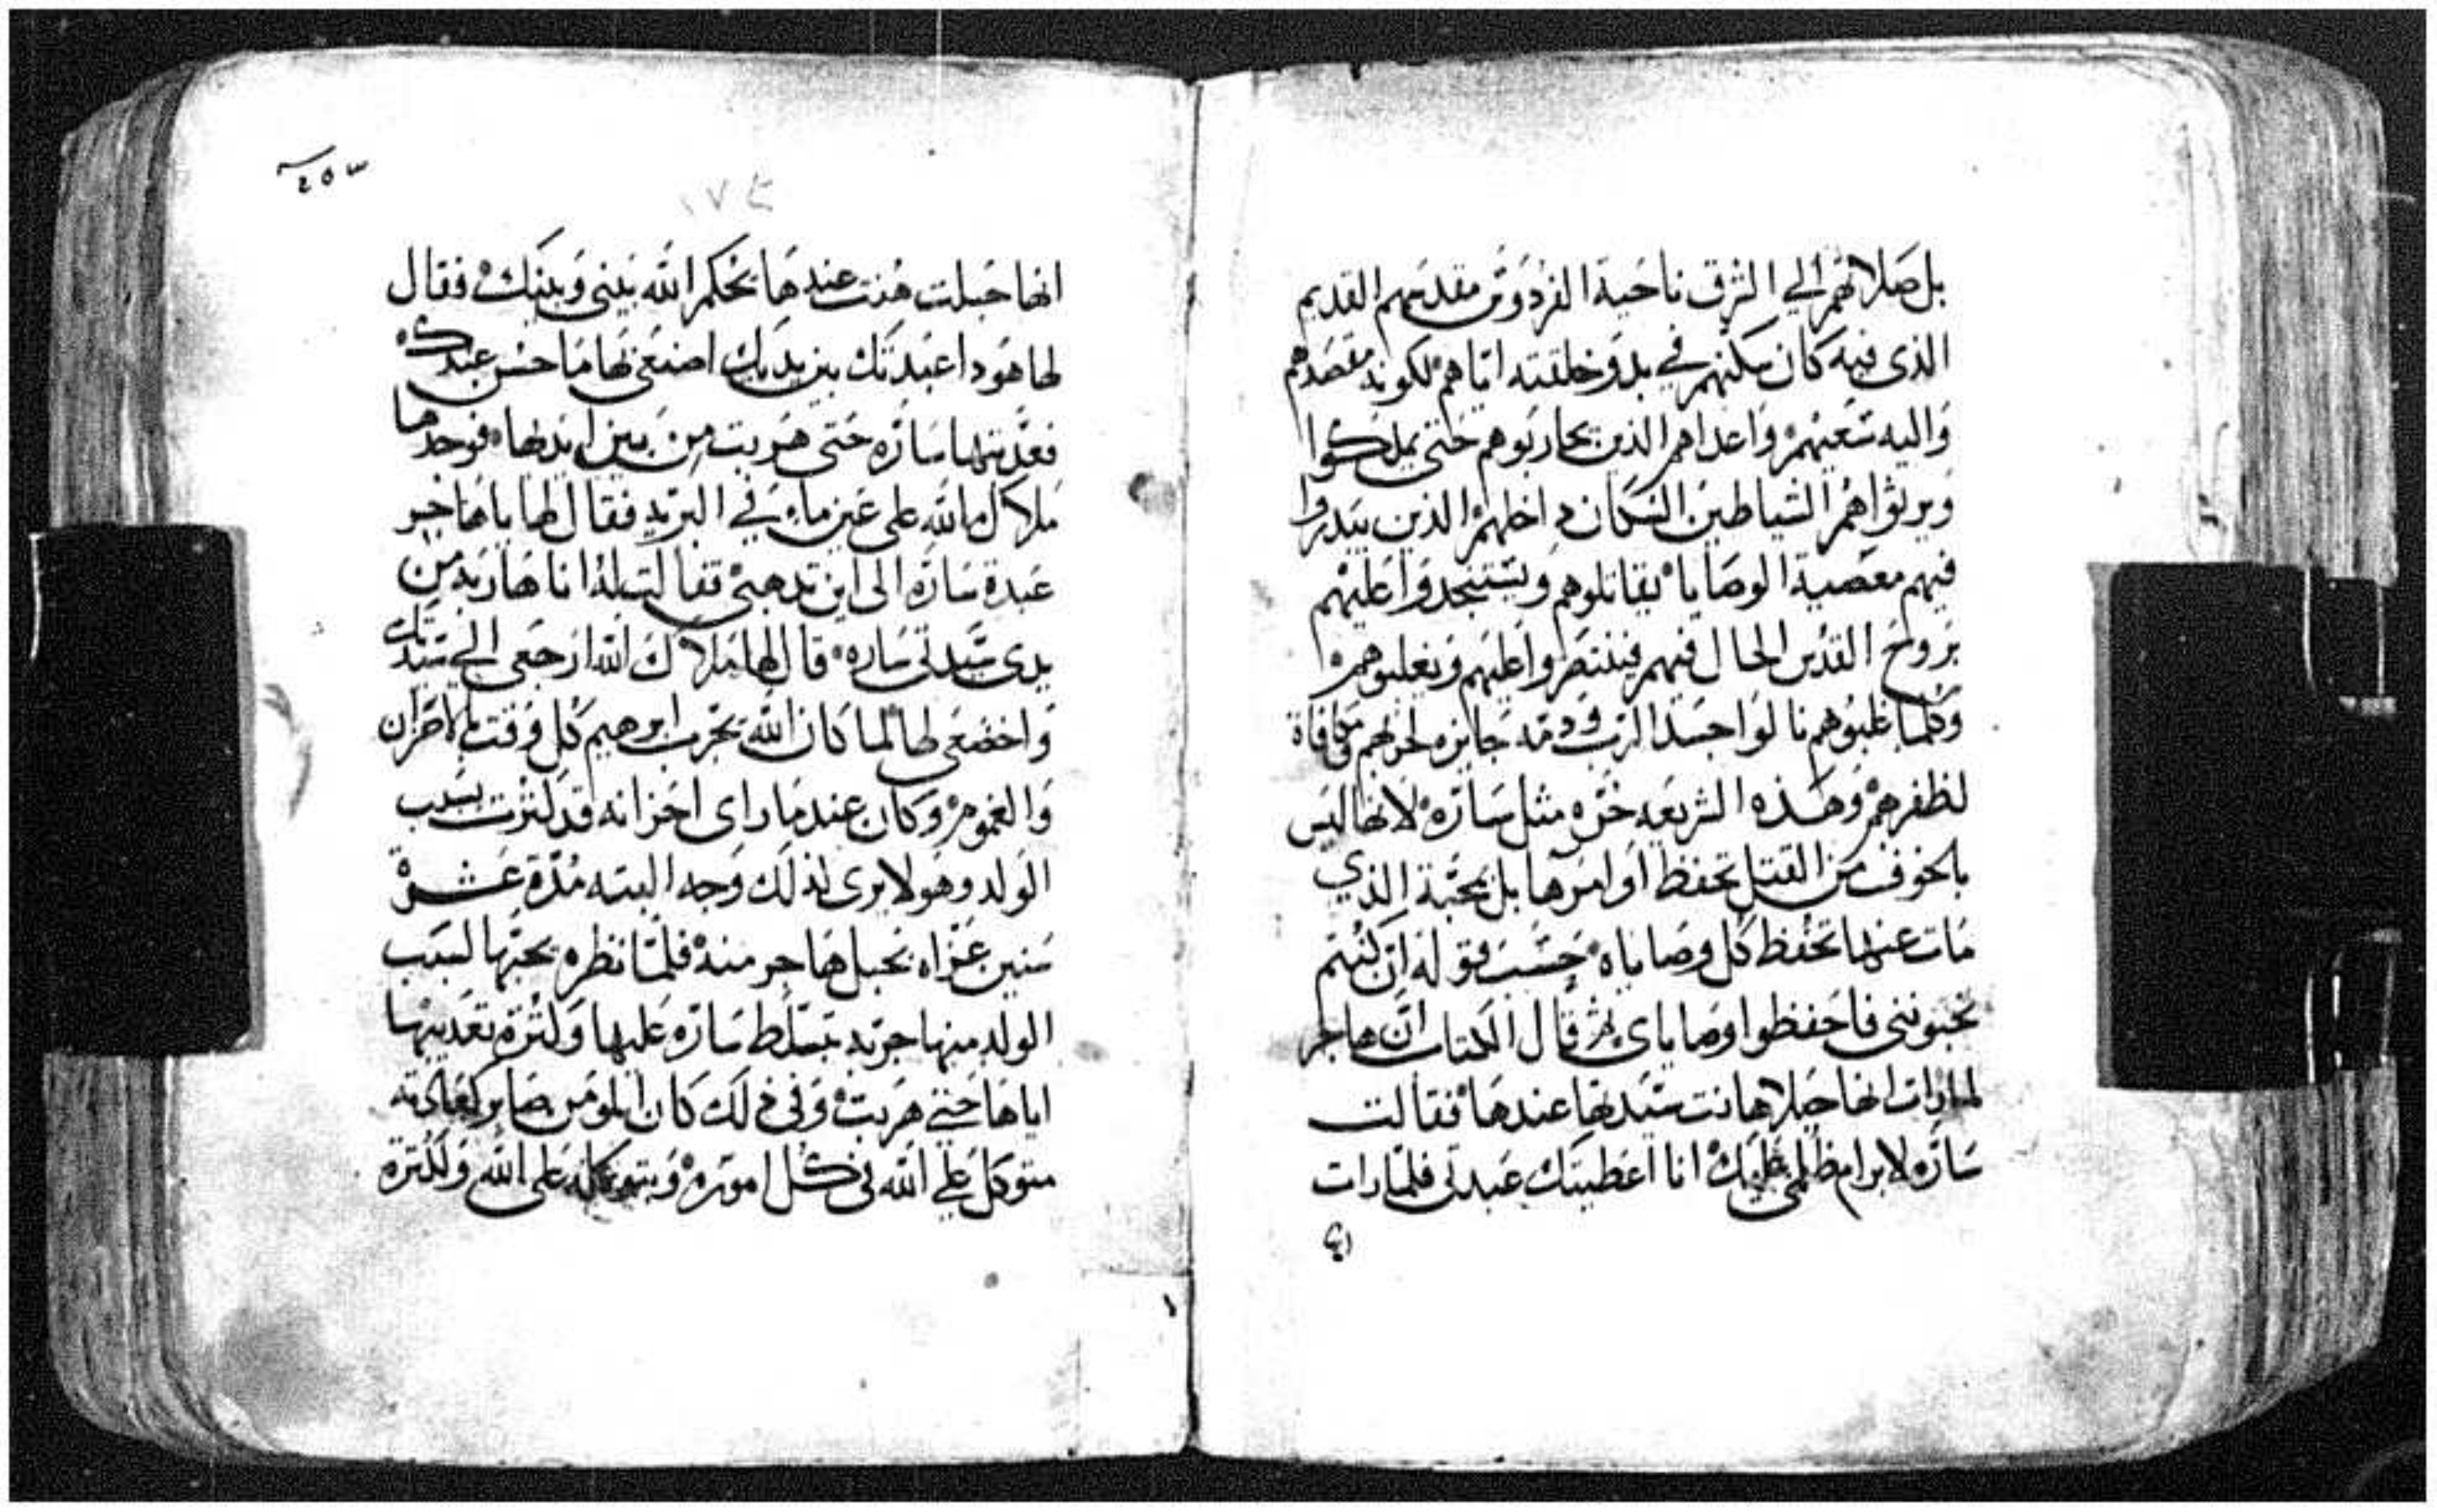 بل صلاتهم الي الشرق ناحية الفردوس مقدسهم القديم
الذى فيه كان سكنهم في بدو خلقته اياهم لكونه مقصدهم
واليه سعيهم واعداهم الذين يحاربوهم حتى يملكوا
ويرثواهم الشياطين السكان داخلهم الذين يبدروا
فيهم معصية الوصايا يقاتلوهم ويستنجدوا عليهم
بروح القدس الحال فيهم فينتصروا عليهم ويغلبوهم
وكلما غلبوهم نالوا جسد الرب ودمه جايزه لحربهم مكافاة
لظفرهم وهذه الشريعه حره مثل ساره لانها ليس
بالخوف من القتل تحفظ اوامرها بل بمحبة الذي
مات عنها تحفظ كل وصاياه حسب قوله ان كنتم
تحبوننى فاحفظوا وصاياى ثم قال الكتاب ان هاجر
لما رات انها حبلا هانت ستها عندها فقالت
ساره لابرام ظلمى عليك انا اعطيتك عبدتى فلما رات
انها حبلت هنت عندها يحكم الله بينى وبينك فقال
لها هودا عبدتك بين يديك اصنعى بها ما حسن عندك
فعذبتها ساره حتى هربت من بين ايديها فوجدها
ملاك الله على عين ماء في البريه فقال لها يا هاجر
عبدة ساره الى اين تدهبى فقالت له انا هاربه من
يدى ستى ساره قال لها ملاك الله ارجعى الي ستك
واخضعى لها لما كان الله يجرب ابرهيم كل وقت بالاحزان
والغموم وكان عندما راى احزانه قد كثرت بسبب
الولد وهو لا يرى لذلك وجه البته مدة عشرة
سنين عزاه بحبل هاجر منه فلما نظره يحبها لسبب
الولد منها جربه بتسلط ساره عليها وكثرة تعذيبها
اياها حتى هربت وفى ذلك كان ايلومن صابر كعادته
متوكل علي الله في كل اموره وبتوكله على الله ولكثرة